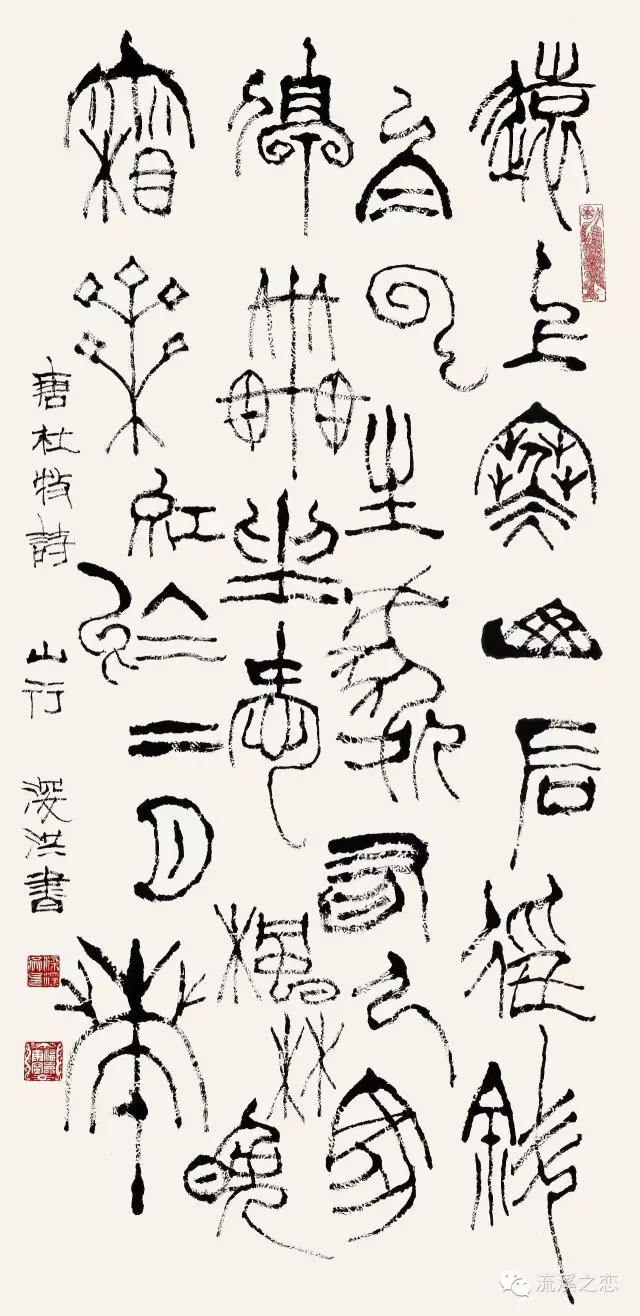 遠上寒山石徑斜
白雲生處有人家
停車坐愛楓林晚
霜葉紅於二月花
唐杜牧詩 山行 深洪書
流溪之恋